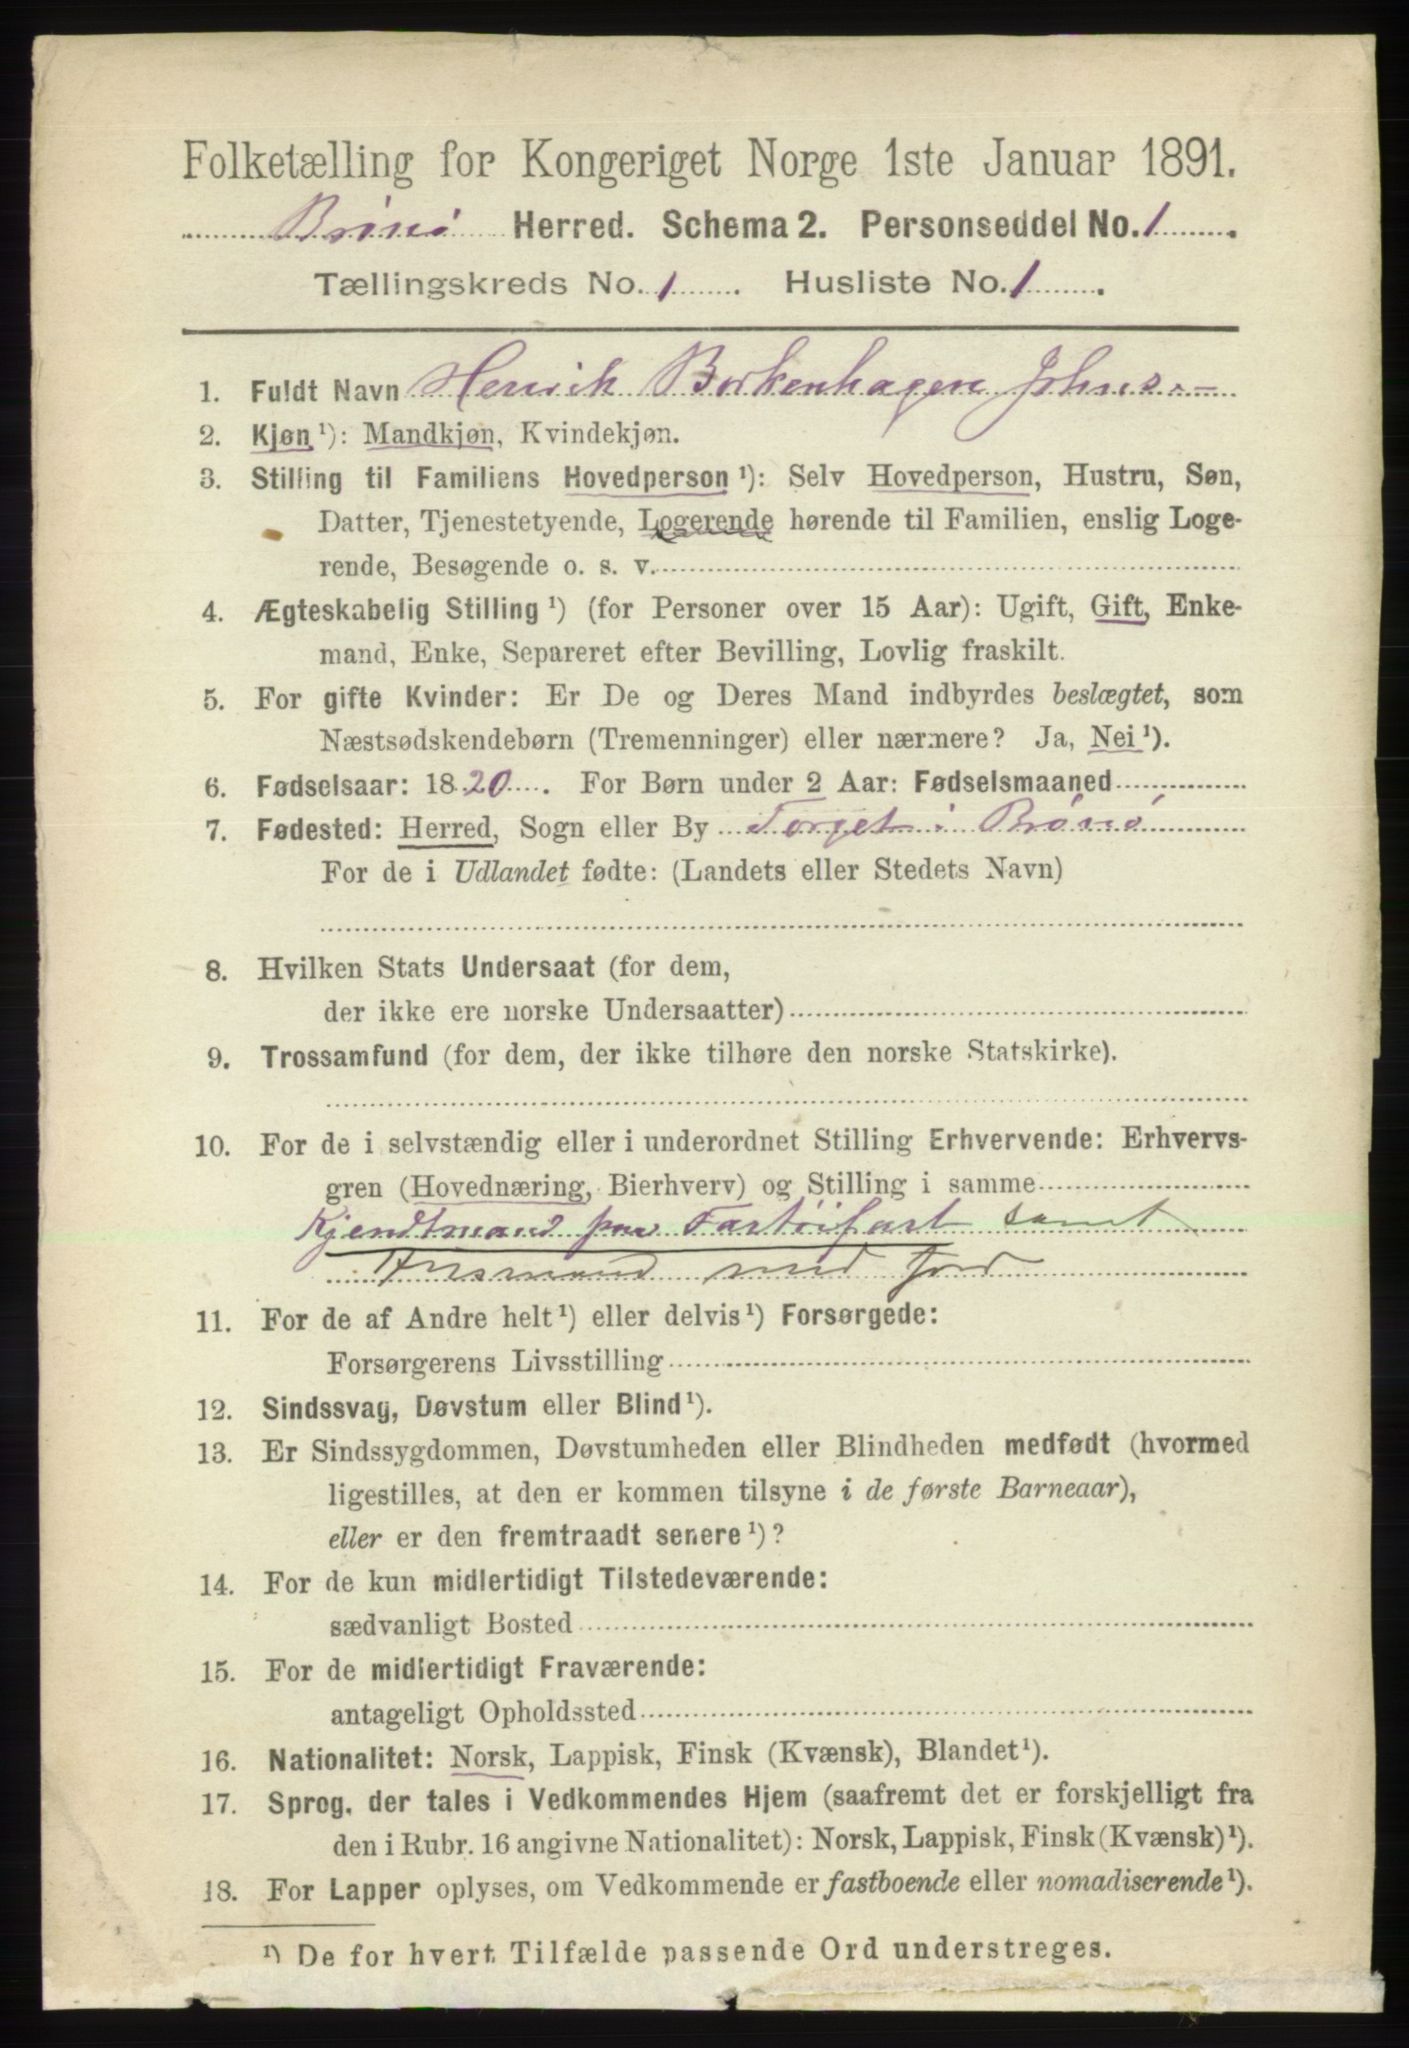 Folketælling for Kongeriget Norge 1ste Januar 1891.
Brønø Herred. Schema 2. Personseddel No. 1.
Tællingskreds No. 1. Husliste No. 1.
1. Fuldt Navn Henrik Borkenhagen Johns.
2. Kjøn¹): Mandkjøn, Kvindekjøn.
3. Stilling til Familiens Hovedperson¹): Selv Hovedperson, Hustru, Søn,
Datter, Tjenestetyende, Logerende hørende til Familien, enslig Loge-
rende, Besøgende o. s. v.
4. Ægteskabelig Stilling¹) (for Personer over 15 Aar): Ugift, Gift, Enke-
mand, Enke, Separeret efter Bevilling, Lovlig fraskilt.
5. For gifte Kvinder: Er De og Deres Mand indbyrdes beslægtet, som
Næstsødskendebørn (Tremenninger) eller nærmere? Ja, Nei¹).
6. Fødselsaar: 1820. For Børn under 2 Aar: Fødselsmaaned
7. Fødested: Herred, Sogn eller By Torget i Brønø
For de i Udlandet fødte: (Landets eller Stedets Navn)
8. Hvilken Stats Undersaat (for dem,
der ikke ere norske Undersaatter)
9. Trossamfund (for dem, der ikke tilhøre den norske Statskirke).
10. For de i selvstændig eller i underordnet Stilling Erhvervende: Erhvervs-
gren (Hovednæring, Bierhverv) og Stilling i samme
Kjendtmand paa Fartøifart samt
Husmand med Jord
11. For de af Andre helt¹) eller delvis¹) Forsørgede:
Forsørgerens Livsstilling
12. Sindssvag, Døvstum eller Blind¹).
13. Er Sindssygdommen, Døvstumheden eller Blindheden medfødt (hvormed
ligestilles, at den er kommen tilsyne i de første Barneaar),
eller er den fremtraadt senere¹)?
14. For de kun midlertidigt Tilstedeværende:
sædvanligt Bosted
15. For de midlertidigt Fraværende:
antageligt Opholdssted
16. Nationalitet: Norsk, Lappisk, Finsk (Kvænsk), Blandet¹).
17. Sprog, der tales i Vedkommendes Hjem (saafremt det er forskjelligt fra
den i Rubr. 16 angivne Nationalitet): Norsk, Lappisk, Finsk (Kvænsk)¹).
18. For Lapper oplyses, om Vedkommende er fastboende eller nomadiserende¹).
¹) De for hvert Tilfælde passende Ord understreges.